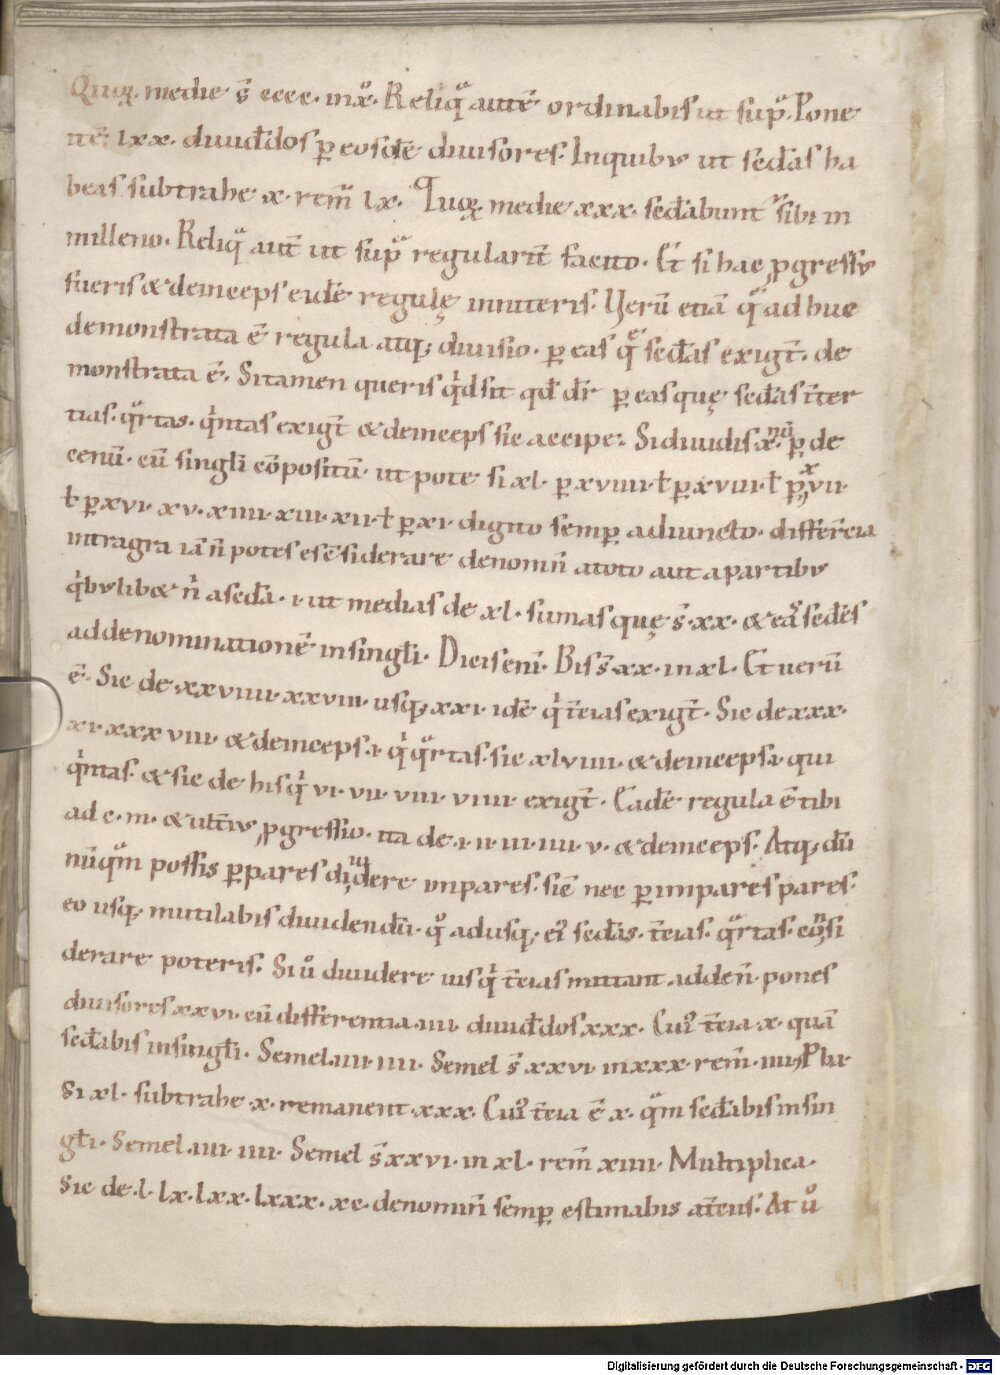 Quoꝝ medie s̄ cccc. in x̊. Reliq̊ autē ordinabis ut sup̊. Pone
itē lxx. diuid̄dos ꝑ eosdē diuisores. In quibus ut sed̄as ha
beas subtrahe x. rem̄ lx. Quoꝝ medie xxx. sed̄abunt sibi in
milleno. Reliq̊ aut̄ ut sup̊ regularit̄ facito. Et si hac ꝓgressus
fueris & deinceps eidē regulę inniteris. Uerū etiā q̊ adhuc
demonstrata ē regula atq; diuisio. ꝑ eas q̄ sed̄as exigt̄. de
monstrata ē. Si tamen queris qⁱd sit qd̄ dr̄ ꝑ eas quę sed̄as t̄ter
tias. qͣrtas. qⁱntas exigt̄ & deinceps sic accipe. Si diuidis x̊nū ꝑ de
cenū. cū singłi cōpositū. ut pote si xl. ꝑ xviiii. ł ꝑ xviii. ł ꝑ xvii.
ł ꝑ xvi. xv. xiiii. xiii. xii. ł ꝑ xi. digito semꝑ adiuncto. differ̄cia
intragra iā n̄ potes c̄siderare denomin̄ a toto aut a partibus
qⁱbus libet n̄ a sed̄a. i. ut medias de xl. sumas quę s̄. xx. & eaͣ sed̄es
ad denominationē in singłi. Dicis enī. Bis s̄ xx. in xl. Et uerū
ē. Sic de xxviiii. xxviii. usq; xxi. idē qⁱ t̄cias exigt̄. Sic de xxx.
xi. xxxviii. & deinceps. i. qⁱ qͣrtas. sic xlviiii. & deinceps. i. qui
qⁱntas. & sic de his qⁱ vi. vii. viii. viiii. exigt̄. Eadē regula ē tibi
ad c. m. & ulti᷒ ꝓgressio. ita de. i. ii. iii. iiii. v. & deinceps. Atq; dū
nūqͣm possis ꝑ pares diuidere inpares. sic nec ꝑ impares pares.
eo usq; mutilabis diuidendū. q̊ ad usq; eiꝰ sed̄as. t̄cias. qͣrtas. c̄si
derare poteris. Si ů diuidere uis qⁱ t̄cias mittant ad den̄. pones
diuisores xxvi. cū differentia iiii. diuid̄dos xxx. Cuiꝰ t̄cia x. quā
sed̄abis in singłi. Semel iiii. iiii. Semel s̄ xxvi. in xxx. rem̄. iiii. Pla.
Si xl. subtrahe x. remanent xxx. Cuiꝰ t̄cia ē x. qͣm sed̄abis in sin
głi. Semel. iiii. iiii. Semel s̄ xxvi. in xl. rem̄ xiiii. Multiplica.
Sic de. l. lx. lxx. lxxx. xc. denomin̄ semꝑ estimabis a t̄ciis. At ů
Digitalisierung gefördert durch die Deutsche Forschungsgemeinschaft - DFG